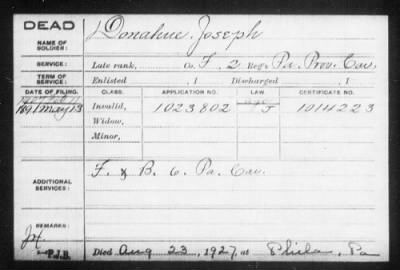 DEAD
NAME OF SOLDIER:
Donahue, Joseph
SERVICE:
Late rank, Co. F, 2 Reg't Pa. Prov. Cav.
TERM OF SERVICE:
Enlisted , 1 Discharged , 1
DATE OF FILING. CLASS. APPLICATION NO. LAW. CERTIFICATE NO.
1891 May 13 Invalid, 1023802 J 1014223
Widow,
Minor,
ADDITIONAL SERVICES:
F. & B. 6. Pa. Cav.
REMARKS:
Died Aug 23, 1927, at Phila, Pa